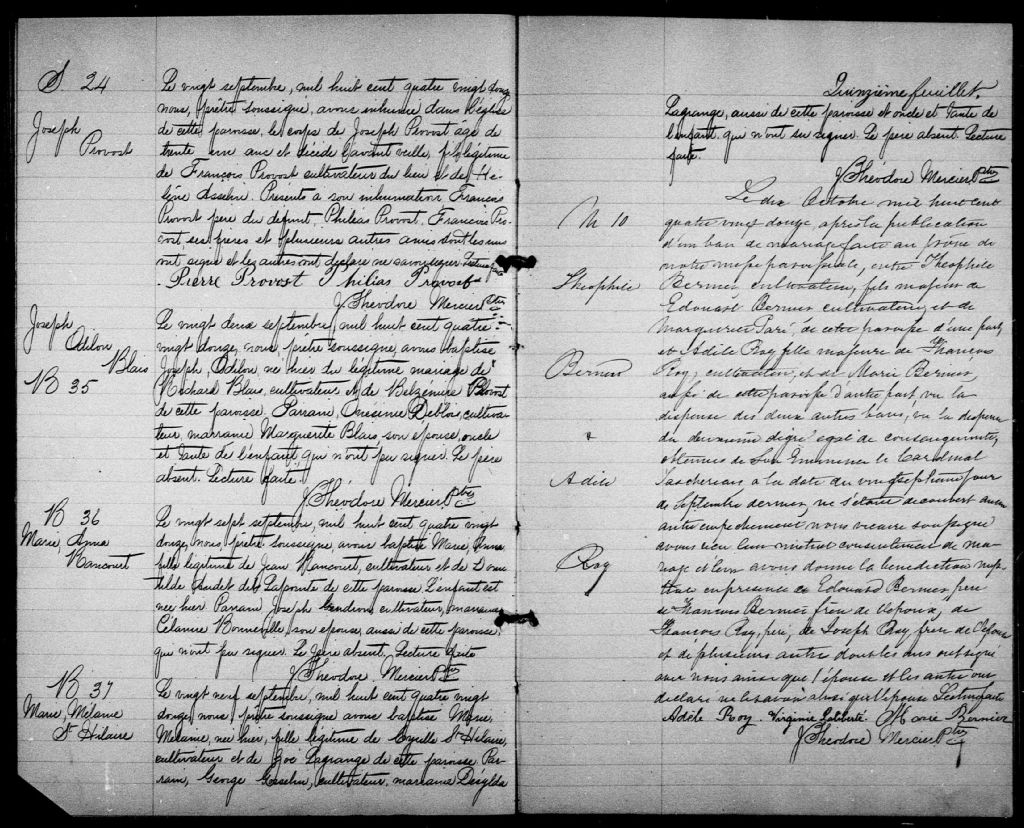 S. 24
Joseph
Provost
Le vingt septembre, mil huit cent quatre vingt douze
nous, prêtre soussigné, avons inhumé dans l'église
de cette paroisse, le corps de Joseph Provost âgé de
trente un ans et décédé l'avant veille, fils légitime
de François Provost cultivateur du lieu et de He-
lène Asselin. Présents à son inhumation François
Provost père du défunt, Philias Provost, François Pro-
vost, ses frères et plusieurs autres amis dont les uns
ont signé et les autres ont déclaré ne savoir signer. Lecture faite
Pierre Provost Philias Provost
J. Théodore Mercier Ptre
Joseph
Odilon
Blais
B 35
Le vingt deux septembre, mil huit cent quatre
vingt douze, nous, prêtre soussigné, avons baptisé
Joseph, Odilon, né hier du légitime mariage de
Richard Blais, cultivateur et de Belzémire Provost
de cette paroisse. Parrain, Onésime Deblois, cultiva-
teur, marraine Marguerite Blais, son épouse, oncle
et tante de l'enfant qui n'ont pu signer. Le père
absent. Lecture faite
J. Théodore Mercier Ptre
B 36
Marie, Anna
Rancourt
Le vingt sept septembre, mil huit cent quatre vingt
douze, nous, prêtre soussigné, avons baptisé Marie, Anna
fille légitime de Jean Rancourt, cultivateur et de Dom-
tilde Audet dit Lapointe de cette paroisse. L'enfant est
née hier. Parrain, Joseph Gendron cultivateur, marraine
Célanire Bonneville, son épouse, aussi de cette paroisse,
qui n'ont pu signer. Le père absent. Lecture faite
J. Théodore Mercier Ptre
B 37
Marie, Mélanie
St Hilaire
Le vingt neuf septembre, mil huit cent quatre vingt
douze, nous prêtre soussigné avons baptisé Marie,
Mélanie, née hier, fille légitime de Cyrille St Hilaire,
cultivateur et de Zoé Lagrange de cette paroisse. Par-
rain, George Gosselin, cultivateur, marraine Dézylda
Quinzième feuillet.
Lagrange, aussi de cette paroisse et oncle et tante de
l'enfant qui n'ont su signer. Le père absent. Lecture
faite.
J. Théodore Mercier, Ptre
M 10
Théophile
Bernier
&
Adèle
Roy
Le dix Octobre mil huit cent
quatre vingt douze, après la publication
d'un ban de mariage faite au prône de
notre messe paroissiale, entre Théophile
Bernier cultivateur, fils majeur de
Edouard Bernier cultivateur, et de
Marguerite Paré, de cette paroisse d'une part,
et Adèle Roy fille majeure de François
Roy, cultivateur, et de Marie Bernier,
aussi de cette paroisse d'autre part, vu la
dispense des deux autres bans, vu la dispense
du deuxième degré égal de consanguinité,
obtenues de Son Eminence le Cardinal
Taschereau à la date du vingt septième jour
de Septembre dernier, ne s'étant découvert aucun
autre empêchement nous vicaire soussigné
avons reçu leur mutuel consentement de ma-
riage et leur avons donné la bénédiction nup-
tiale en présence de Edouard Bernier, père
de François Bernier frère de l'époux, de
François Roy, père, de Joseph Roy, frère de l'épouse
et de plusieurs autres dont les uns ont signé
avec nous ainsi que l'épouse et les autres ont
déclaré ne le savoir ainsi que l'époux Lecture faite
Adèle Roy. Virginie Laliberté. Marie Bernier
J. Théodore Mercier Ptre